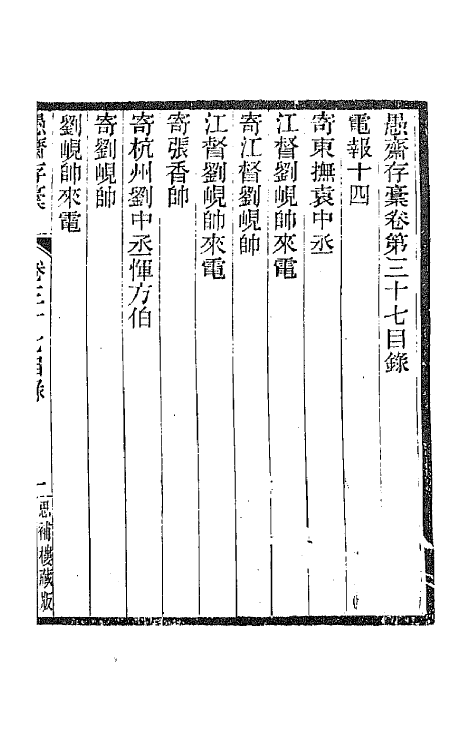 愚齋存稾卷第三十七目錄
電報十四
寄東撫袁中丞
江督劉峴帥來電
寄江督劉峴帥
江督劉峴帥來電
寄張香帥
寄杭州劉中丞惲方伯
寄劉峴帥
劉峴帥來電
愚齋存稾
卷三十七目錄
一
思補樓藏版